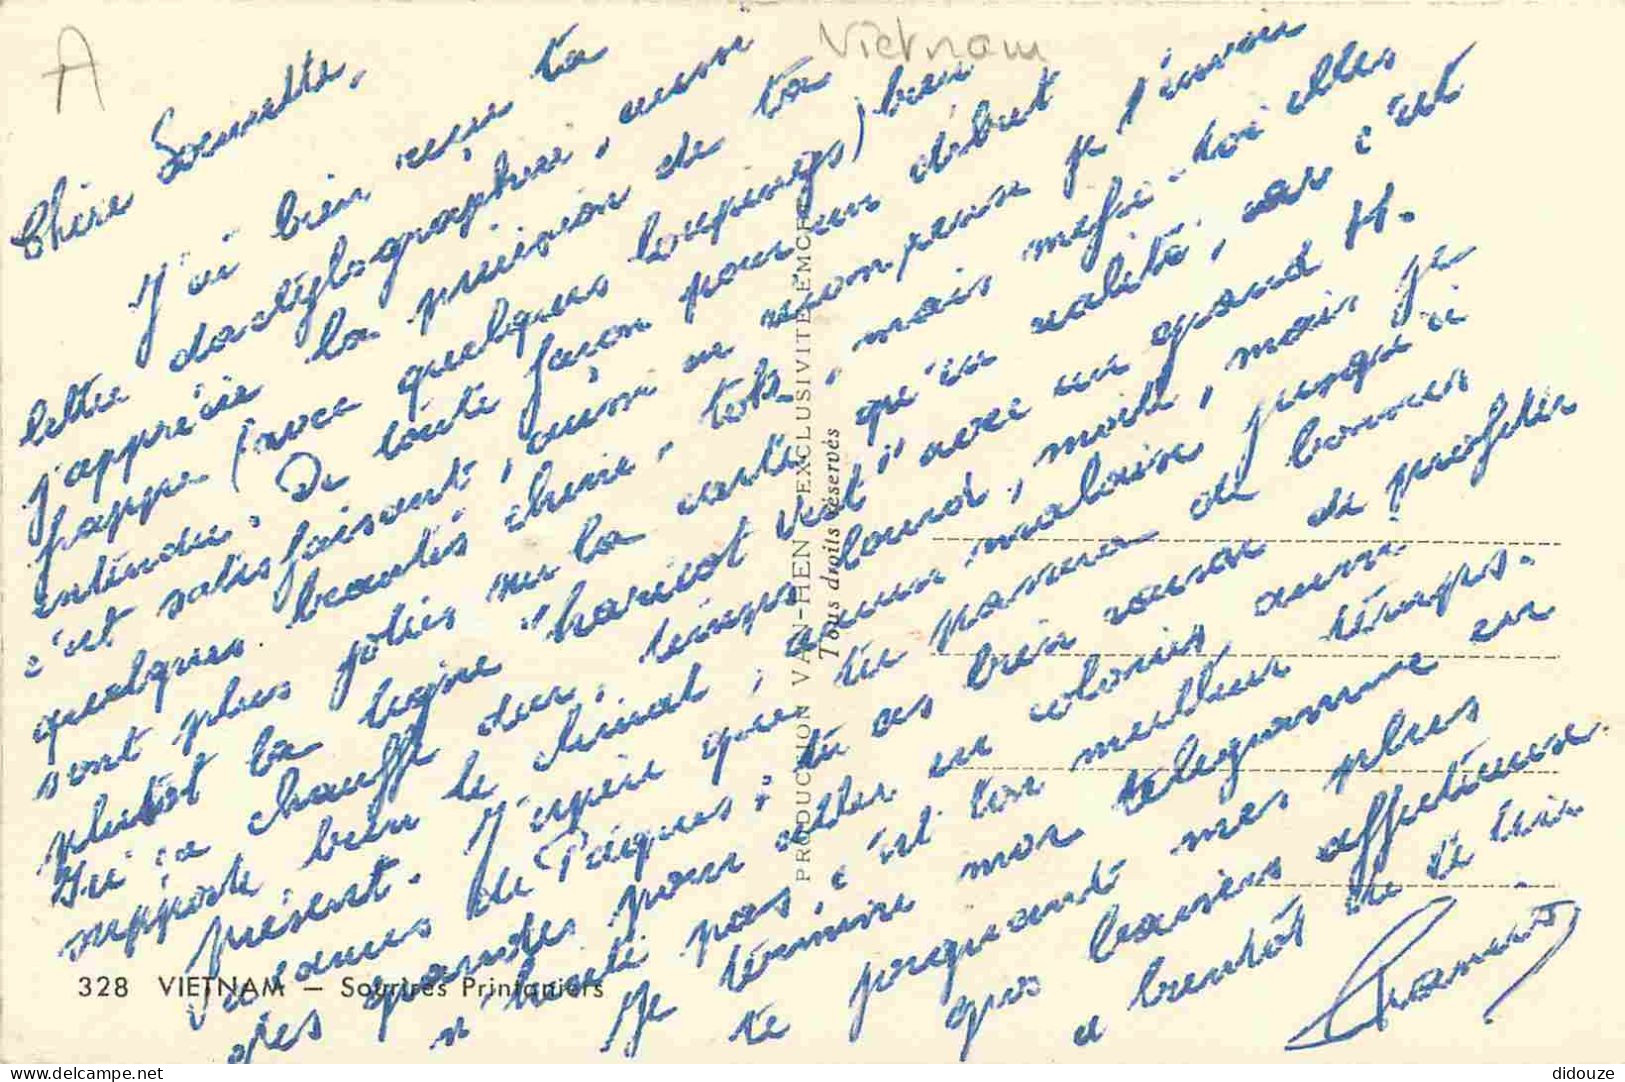 A
Vietnam
Chère Soeurette,
J'ai bien reçu ta
lettre dactylographiée, aussi
j'apprécie la précision de ta
frappe (avec quelques loupings) bien
entendu. De toute façon pour un début
c'est satisfaisant, aussi en récompense je t'envoie
quelques beautés chinoises, mais méfie-toi elles
sont plus jolies sur la carte qu'en réalité, car c'est
plutôt la togne "haricot vert" avec un grand H.
Ici ça chauffe dur, temps lourd, moite, mais je
supporte bien le climat, aucun malaise jusqu'à
présent. J'espère que tu passeras de bonnes
vacances de Pâques; tu as bien raison de profiter
des grandes pour aller en colonies aussi
n'hésite pas, c'est ton meilleur temps.
Je termine mon télégramme en
te joignant mes plus
gros baisers affectueux.
a bientôt de te lire
328 VIETNAM — Sourires Printaniers
PRODUCTION VAN-HEN EXCLUSIVITE EMCR
Tous droits réservés
didouze